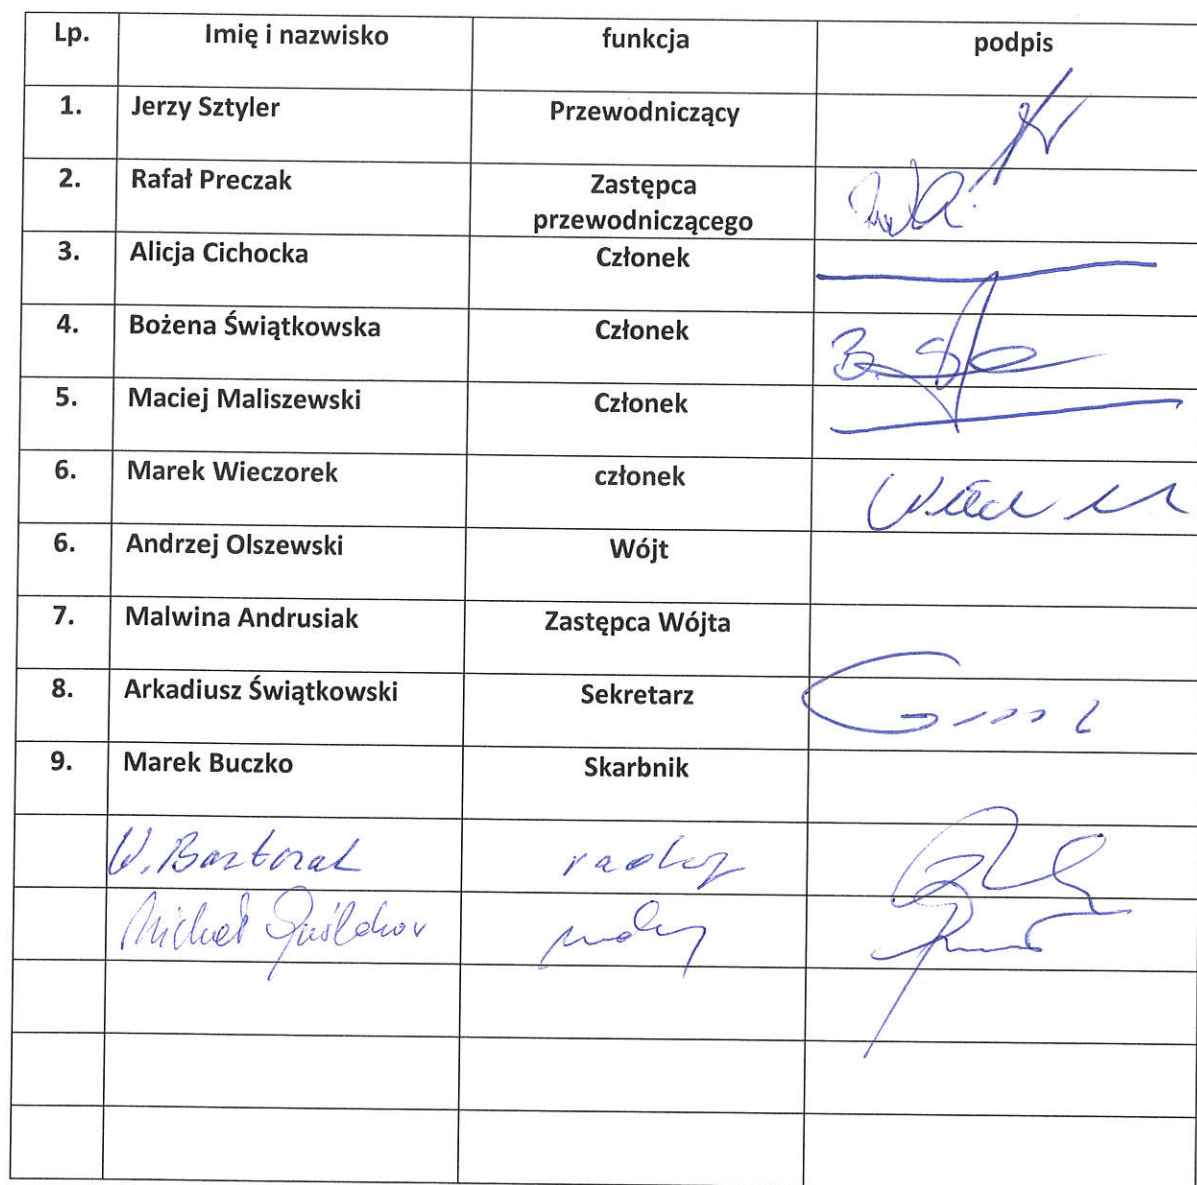 Lp. Imię i nazwisko funkcja podpis
1. Jerzy Sztyler Przewodniczący
2. Rafał Preczak Zastępca
przewodniczącego
3. Alicja Cichocka Członek
4. Bożena Świątkowska Członek
5. Maciej Maliszewski Członek
6. Marek Wieczorek członek
6. Andrzej Olszewski Wójt
7. Malwina Andrusiak Zastępca Wójta
8. Arkadiusz Świątkowski Sekretarz
9. Marek Buczko Skarbnik
W. radny
Michał radny